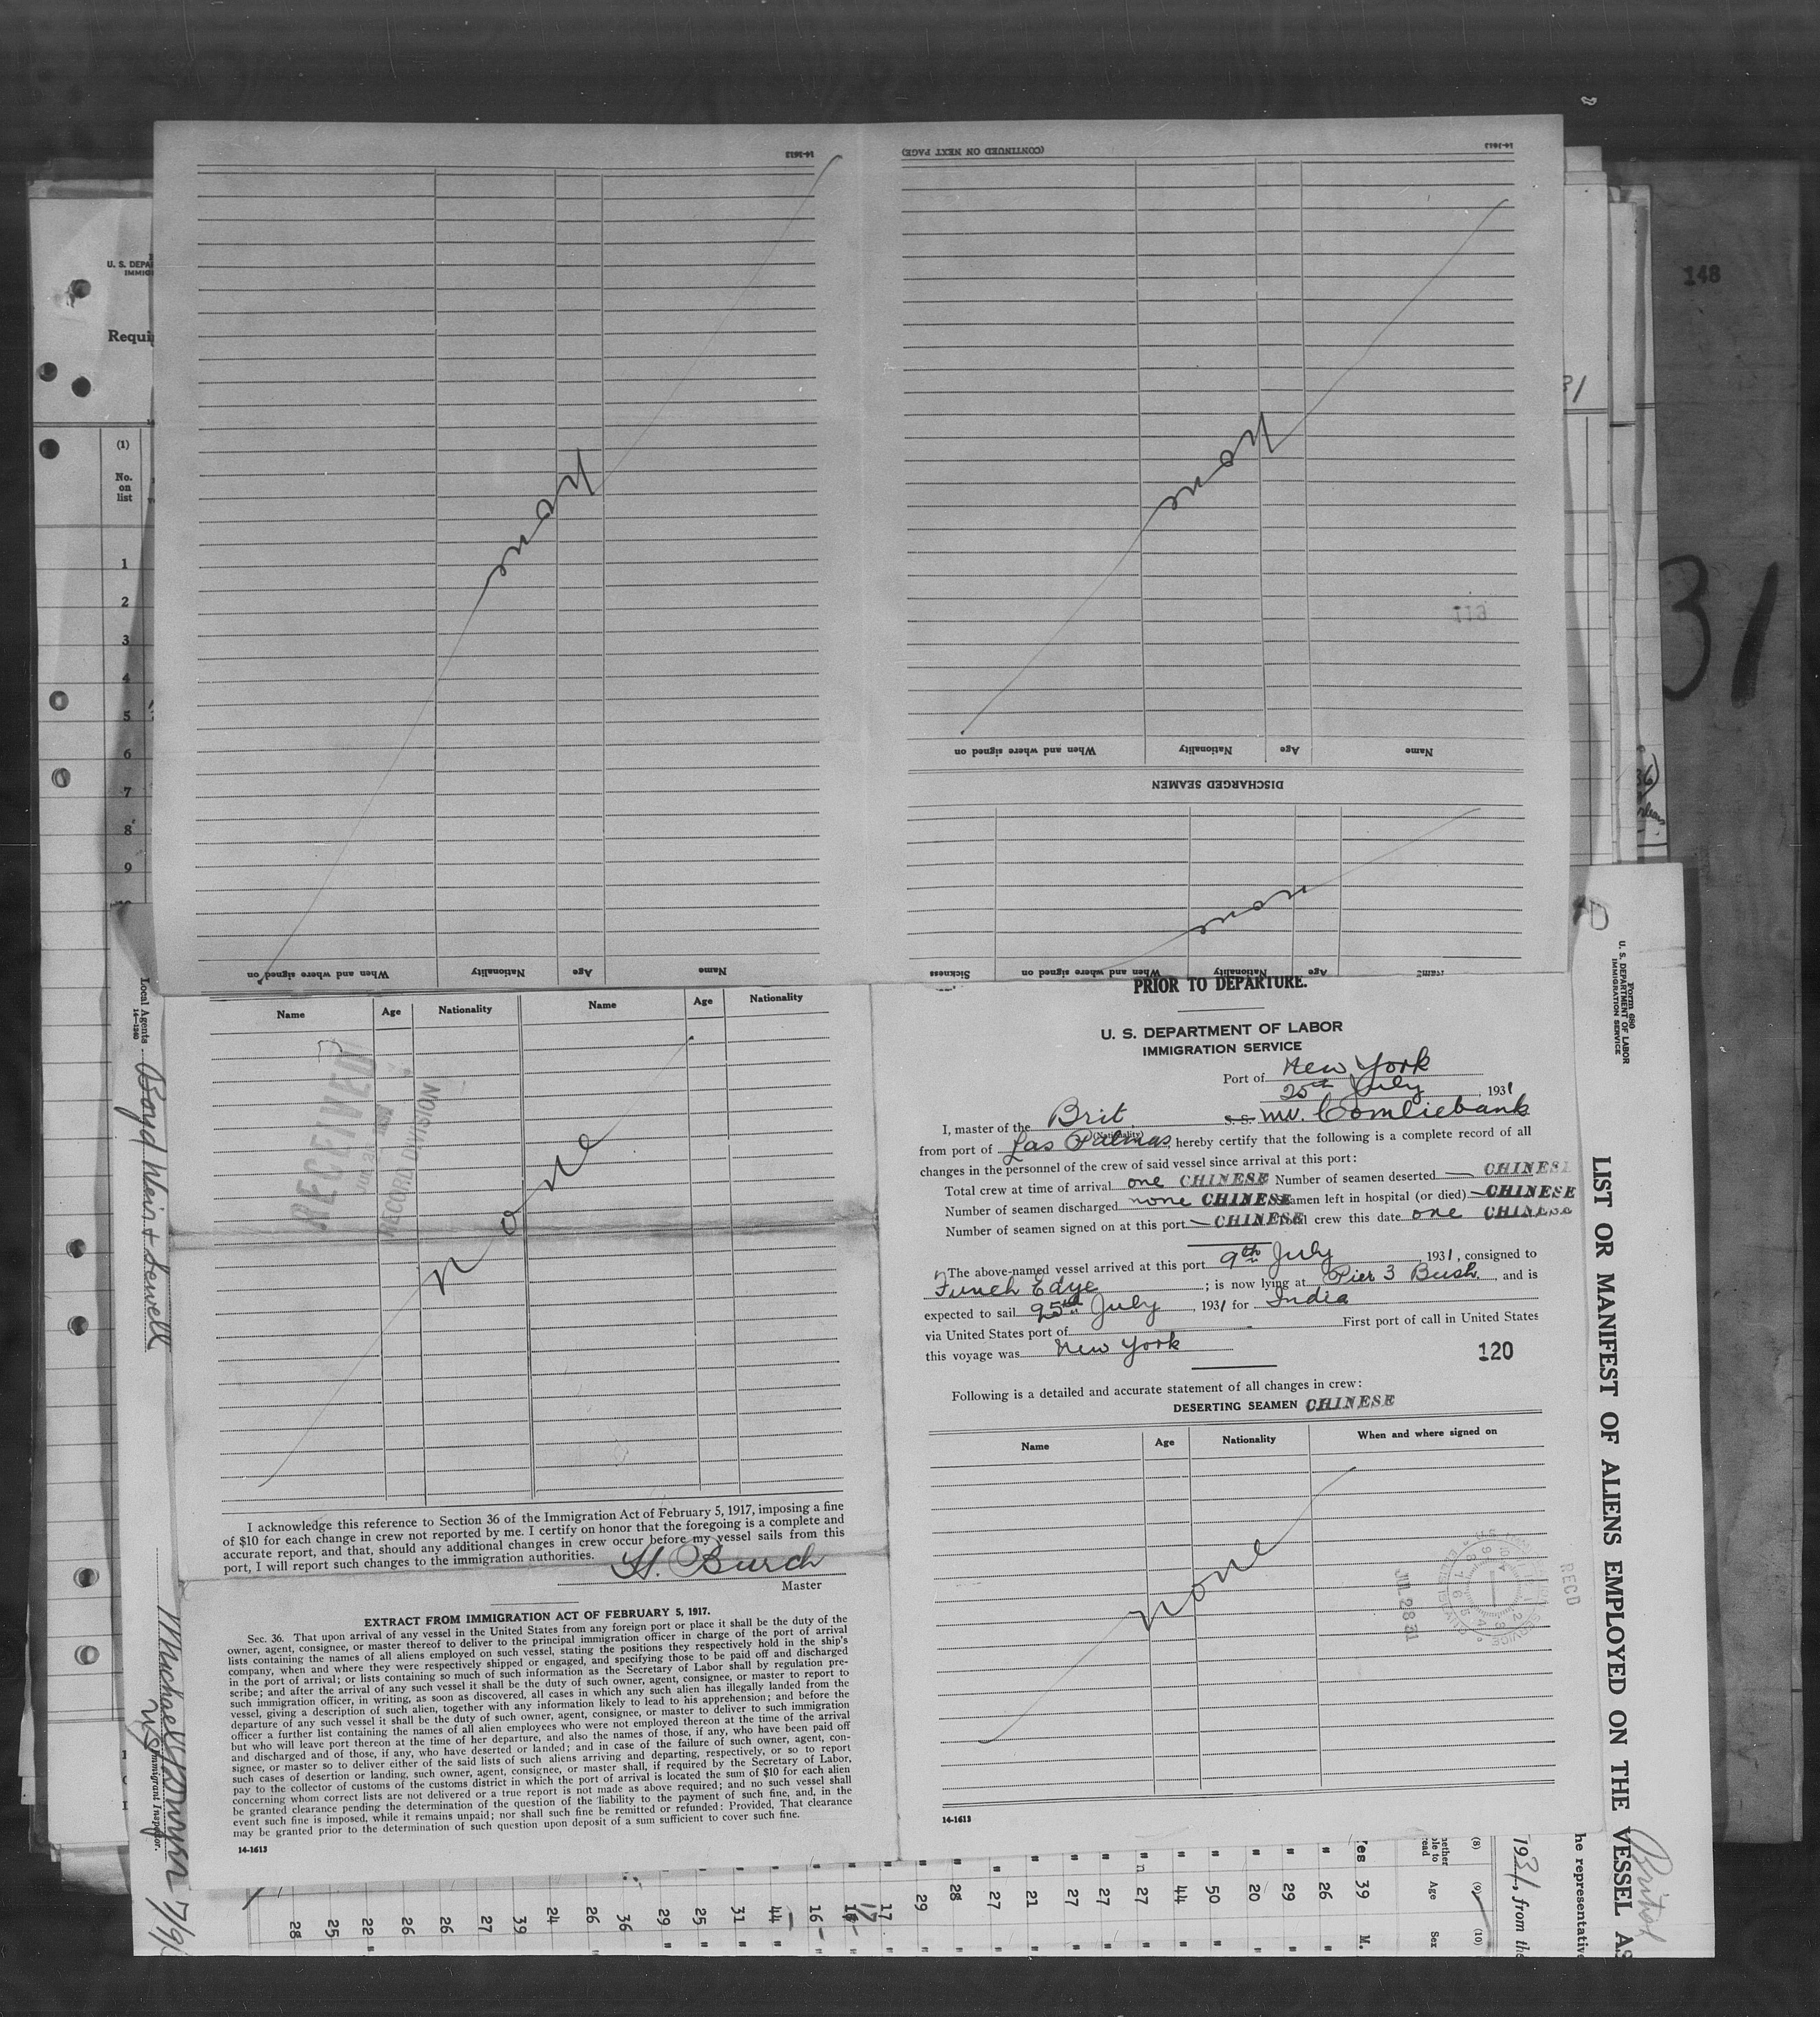 14-1613
(CONTINUED ON NEXT PAGE)
14-1613
148
U. S. DEPA
IMMIG
Requi
31
(1)
No.
on
list
1
2
3
4
5
6
7
8
9
31
none
none
113
Name Age Nationality When and where signed on
DISCHARGED SEAMEN
none
Name Age Nationality When and where signed on
Name Age Nationality When and where signed on Sickness
PRIOR TO DEPARTURE.
U. S. DEPARTMENT OF LABOR
IMMIGRATION SERVICE
Port of New York
25th July, 1931
I, master of the Brit. S. S. MV. Comliebank
(Nationality)
from port of Las Palmas, hereby certify that the following is a complete record of all
changes in the personnel of the crew of said vessel since arrival at this port:
Total crew at time of arrival one CHINESE Number of seamen deserted — CHINESE
Number of seamen discharged none CHINESE Seamen left in hospital (or died) — CHINESE
Number of seamen signed on at this port — CHINESE Total crew this date one CHINESE
The above-named vessel arrived at this port 9th July, 1931, consigned to
Funch Edye; is now lying at Pier 3 Bush, and is
expected to sail 25th July, 1931 for India
via United States port of - First port of call in United States
this voyage was New York
120
Following is a detailed and accurate statement of all changes in crew:
DESERTING SEAMEN CHINESE
Name Age Nationality When and where signed on
none
REC'D
JUL 28 31
14-1613
Name Age Nationality Name Age Nationality
RECEIVED
RECORD DIVISION
none
I acknowledge this reference to Section 36 of the Immigration Act of February 5, 1917, imposing a fine
of $10 for each change in crew not reported by me. I certify on honor that the foregoing is a complete and
accurate report, and that, should any additional changes in crew occur before my vessel sails from this
port, I will report such changes to the immigration authorities.
H. Burch
Master
EXTRACT FROM IMMIGRATION ACT OF FEBRUARY 5, 1917.
Sec. 36. That upon arrival of any vessel in the United States from any foreign port or place it shall be the duty of the
owner, agent, consignee, or master thereof to deliver to the principal immigration officer in charge of the port of arrival
lists containing the names of all aliens employed on such vessel, stating the positions they respectively hold in the ship's
company, when and where they were respectively shipped or engaged, and specifying those to be paid off and discharged
in the port of arrival; or lists containing so much of such information as the Secretary of Labor shall by regulation pre-
scribe; and after the arrival of any such vessel it shall be the duty of such owner, agent, consignee, or master to report to
such immigration officer, in writing, as soon as discovered, all cases in which any such alien has illegally landed from the
vessel, giving a description of such alien, together with any information likely to lead to his apprehension; and before the
departure of any such vessel it shall be the duty of such owner, agent, consignee, or master to deliver to such immigration
officer a further list containing the names of all alien employees who were not employed thereon at the time of the arrival
but who will leave port thereon at the time of her departure, and also the names of those, if any, who have been paid off
and discharged and of those, if any, who have deserted or landed; and in case of the failure of such owner, agent, con-
signee, or master so to deliver either of the said lists of such aliens arriving and departing, respectively, or so to report
such cases of desertion or landing, such owner, agent, consignee, or master shall, if required by the Secretary of Labor,
pay to the collector of customs of the customs district in which the port of arrival is located the sum of $10 for each alien
concerning whom correct lists are not delivered or a true report is not made as above required; and no such vessel shall
be granted clearance pending the determination of the question of the liability to the payment of such fine, and, in the
event such fine is imposed, while it remains unpaid; nor shall such fine be remitted or refunded: Provided, That clearance
may be granted prior to the determination of such question upon deposit of a sum sufficient to cover such fine.
14-1613
Local Agents Boyd Weir & Sewell
14-1240
Immigrant Inspector.
7/9/
Form 680
U. S. DEPARTMENT OF LABOR
IMMIGRATION SERVICE
LIST OR MANIFEST OF ALIENS EMPLOYED ON THE VESSEL AS
British
he representative
1931, from the
(8) (9) (10)
Age Sex
es 39 M.
26
29
20
50
44
27
27
27
21
27
28
29
17
16
44
31
25
29
36
26
24
39
27
26
26
22
25
28